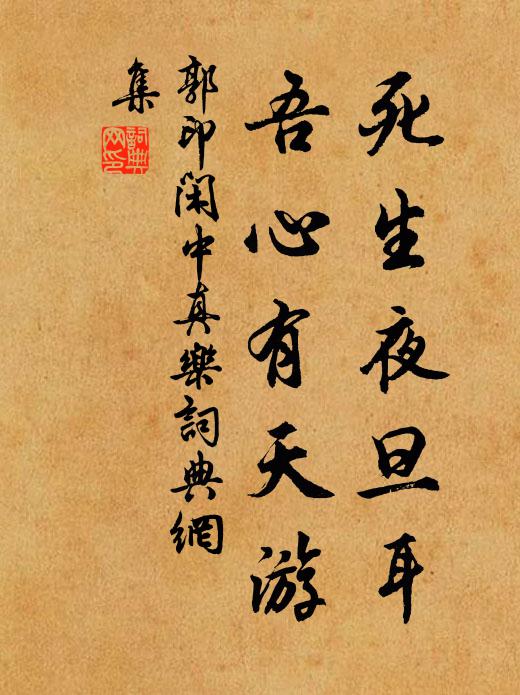 死生夜旦耳
吾心有天游
郭印閑中真樂詞典網
集
詞典
网印